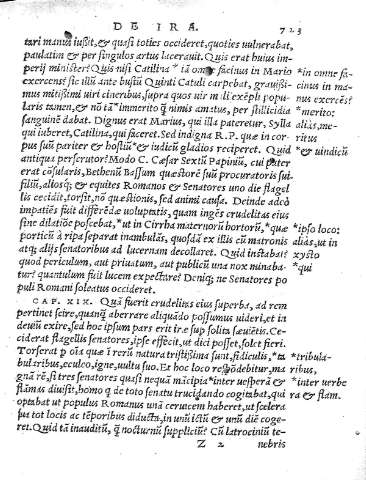 DE IRA. 723
tari manus iußit, & quasi toties occideret, quoties uulnerabat,
paulatim & per singulos artus lacerauit. Quis erat huius im-
perij minister? Quis nisi Catilina * tã omne facinus in Mario *in omne fa-
exercens? sic illũ ante bustũ Quinti Catuli carpebat, grauißi- cinus in ma-
mus mitißimi uiri cineribus, supra quos uir mali exẽpli popu- nus exercẽs?
laris tamen, & nõ tã * immerito q̃ nimis amatus, per stillicidia *merito:
sanguinẽ dabat. Dignus erat Marius, qui illa pateretur, Sylla aliàs, me-
qui iuberet, Catilina, qui faceret. Sed indigna R.P. quæ in cor- ritus
pus suũ pariter & hostiũ * & iudicũ gladios reciperet. Quid *& uindicũ
antiqua perscrutor? Modo C. Cæsar Sextũ Papiniũ, cui pater
erat cõsularis, Bethenũ Bassum quæstorẽ suũ procuratoris sui
filiũ, aliosq; & equites Romanos & Senatores uno die flagel
lis cecidit, torsit, nõ quæstionis, sed animi causa. Deinde adeò
impatiẽs fuit differẽdæ uoluptatis, quam ingẽs crudelitas eius
sine dilatiõe poscebat, *ut in Cirrha maternorũ hortorũ, *quæ *ipso loco:
porticũ à ripa separat inambulãs, quosdã ex illis cũ matronis aliàs, ut in
atq; alijs senatoribus ad lucernam decollaret. Quid instabat? xysto
quod periculum, aut priuatum, aut publicũ una nox minaba- *qui
tur? quantulum fuit lucem expectare? Deniq; ne Senatores po
puli Romani soleatus occideret.
CAP. XIX. Quã fuerit crudelitas eius superba, ad rem
pertinet scire, quanq̃ aberrare aliquādo possumus uideri, et in
deuiũ exire, sed hoc ipsum pars erit iræ sup solita sæuiẽtis. Ce-
ciderat flagellis senatores, ipse effecit, ut dici posset, solet fieri.
Torserat p oĩa quæ ĩ rerũ natura tristißima sunt, fidiculis, *ta *tribula-
bularibus, eculeo, igne, uultu suo. Et hoc loco respõdebitur, ma ribus,
gnã rẽ, si tres senatores quasi nequã mãcipia *inter uesperã & *inter uerbe
flãmas diuisit, homo q̃ de toto senatu trucidando cogitabat, qui ra & flam.
optabat ut populus Romanus unã ceruicem haberet, ut scelera
sua tot locis ac tẽporibus diducta, in unũ ictũ & unũ diẽ coge-
ret. Quid tã inauditũ, q̃ nocturnũ suppliciũ? Cũ latrociniũ te-
Z 2 nebris